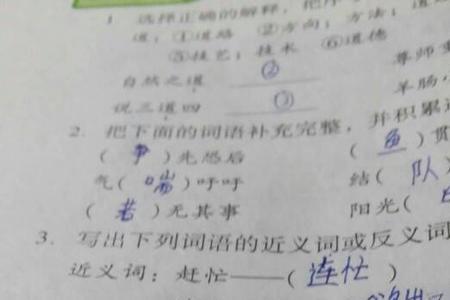 1. 选择正确的解释，把序
道：①道路 ②方向；方法；道
⑤技艺；技术 ⑥道德
自然之道 ② 尊师
说三道四 ③ 羊肠
2. 把下面的词语补充完整，并积累
（争）先恐后 （鱼）贯
气（喘）吁吁 结（队
（若）无其事 阳光（
3. 写出下列词语的近义词或反义词
近义词：赶忙——（连忙）